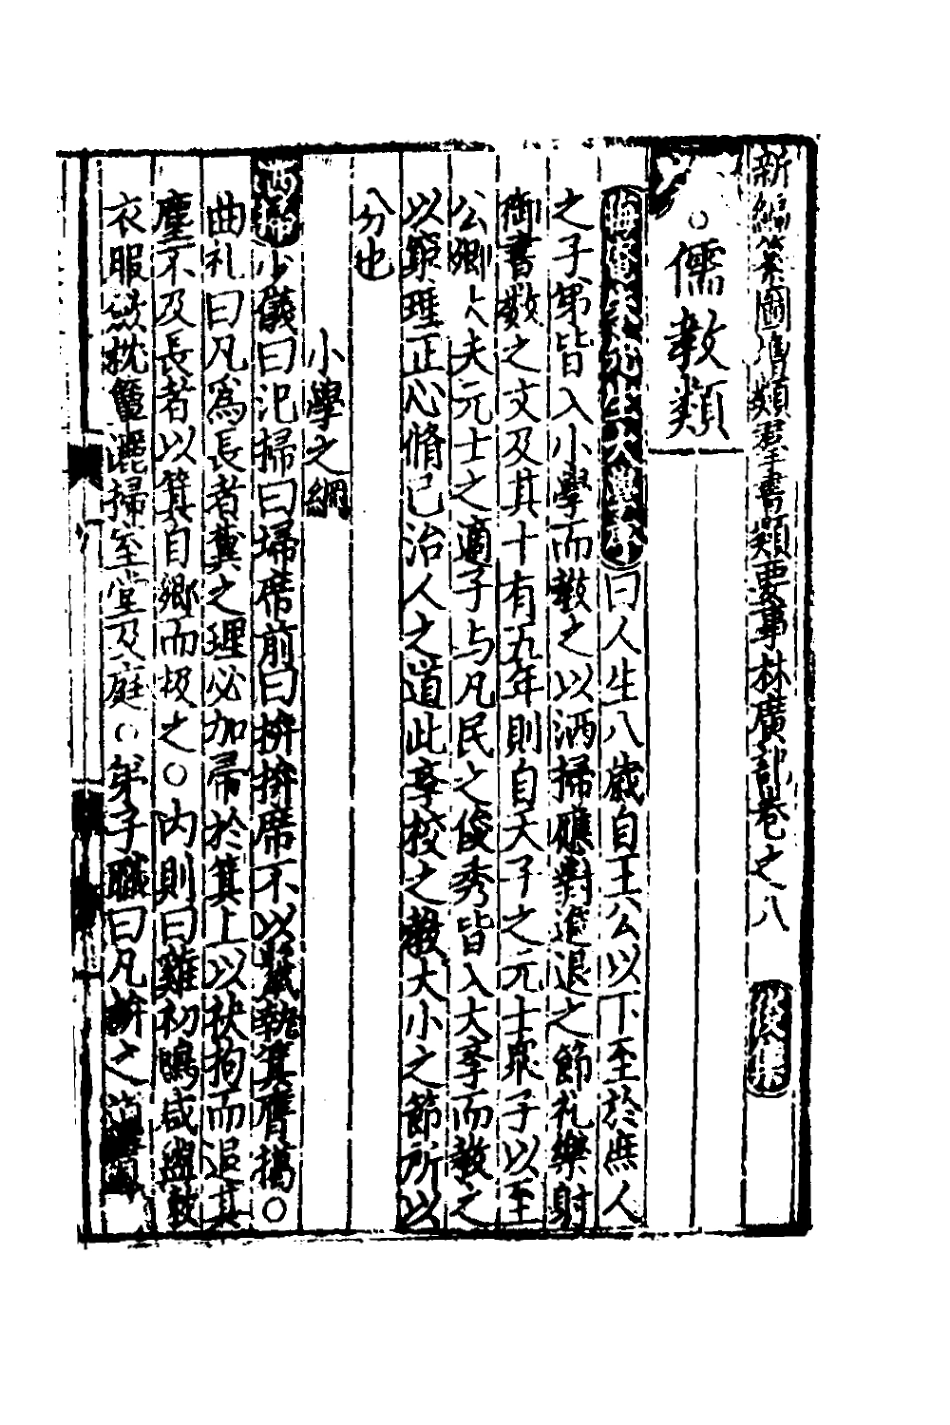 新編纂圖增類羣書類要事林廣記卷之八
○儒教類
曰人生八歲自王公以下至於庶人
之子弟皆入小學而教之以洒掃應對進退之節礼樂射
御書數之文及其十有五年則自天子之元士衆子以至
公卿大夫元士之適子与凡民之俊秀皆入大斈而教之
以窮理正心脩己治人之道此斈校之教大小之節所以
分也
小學之綱
少儀曰汜掃曰埽席前曰拚拚席不以鬣執箕膺擖○
曲礼曰凡為長者糞之理必加帚於箕上以袂拘而退其
塵不及長者以箕自鄉而扱之○内則曰雞初鳴咸盥漱
衣服斂枕簟灑掃室堂及庭○弟子職曰凡拚之